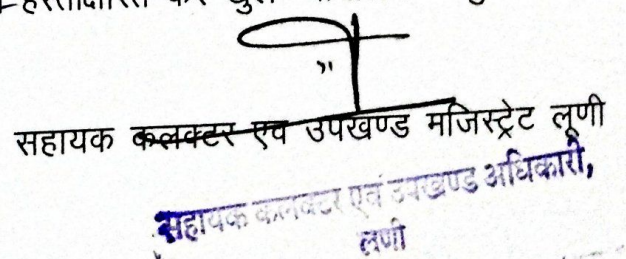 हस्ताक्षारित कर
सहायक कलक्टर एवं उपखण्ड मजिस्ट्रेट लूणी
सहायक कलक्टर एवं उपखण्ड अधिकारी,
लूणी